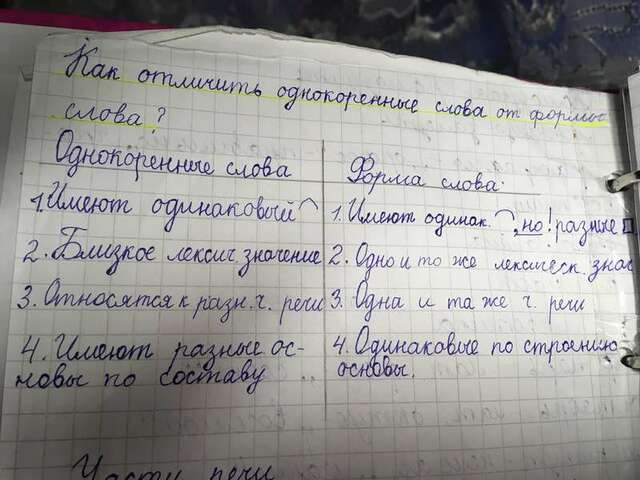 Как отличить однокоренные слова от формы
слова?
Однокоренные слова
1. Имеют одинаковый ⌒
2. Близкое лексич. значение
3. Относятся к разн. ч. речи
4. Имеют разные ос-
новы по составу
Форма слова:
1. Имеют одинак. ⌒, но! разные □
2. Одно и то же лексическ. знач
3. Одна и та же ч. речи
4. Одинаковые по строению
основы.
Части речи